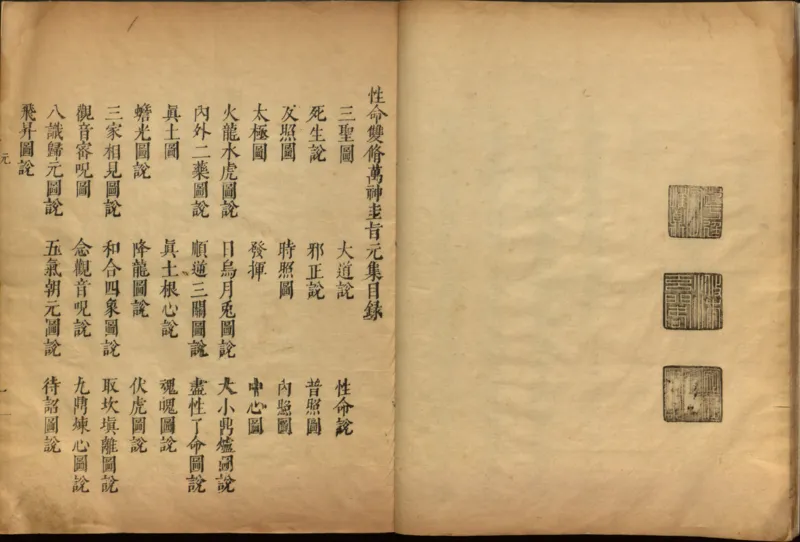 性命雙脩萬神圭旨元集目錄
三聖圖 大道說 性命說
死生說 邪正說 普照圖
反照圖 時照圖 內照圖
太極圖 發揮 中心圖
火龍水虎圖說 日烏月兔圖說 大小鼎爐圖說
內外二藥圖說 順逆三關圖說 盡性了命圖說
眞土圖 眞土根心說 魂魄圖說
蟾光圖說 降龍圖說 伏虎圖說
三家相見圖說 和合四象圖說 取坎塡離圖說
觀音審呪圖 念觀音呪說 九鼎煉心圖說
八識歸元圖說 五氣朝元圖說 待詔圖說
飛昇圖說
元
一